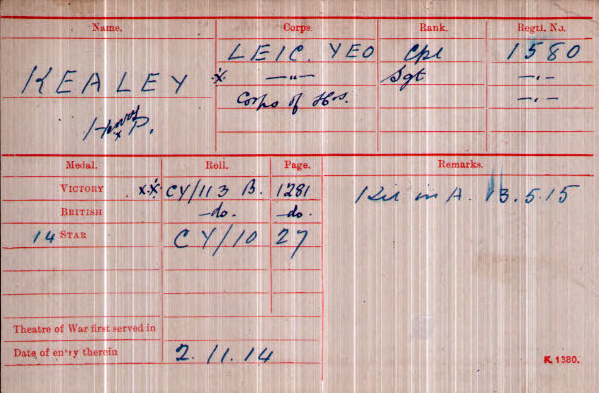 Name. Corps. Rank. Regtl. No.
LEIC. YEO Cpl 1580
KEALEY x —"— Sgt —"—
Corps of Hrs. —"—
Henry P.
x
Medal. Roll. Page. Remarks.
VICTORY x.x CY/113 B. 1281 Kil in A. 13.5.15
BRITISH —do. —do.
14 STAR CY/10 27
Theatre of War first served in
Date of entry therein 2.11.14
K 1380.